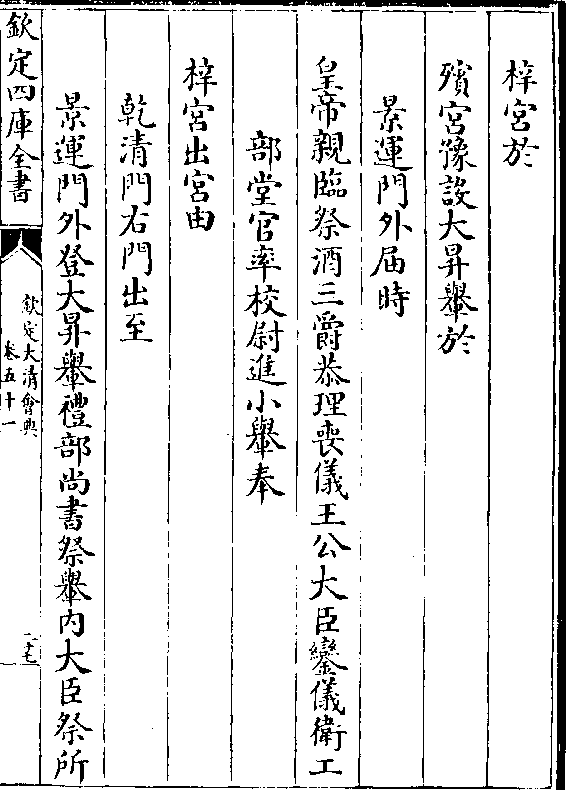 梓宮於
殯宮豫設大昇轝於
景運門外届時
皇帝親臨祭酒三爵恭理喪儀王公大臣鑾儀衛工
部堂官率校尉進小轝奉
梓宮出宮由
乾清門右門出至
景運門外登大昇轝禮部尚書祭轝内大臣祭所
欽定四庫全書
欽定大清會典
卷五十一